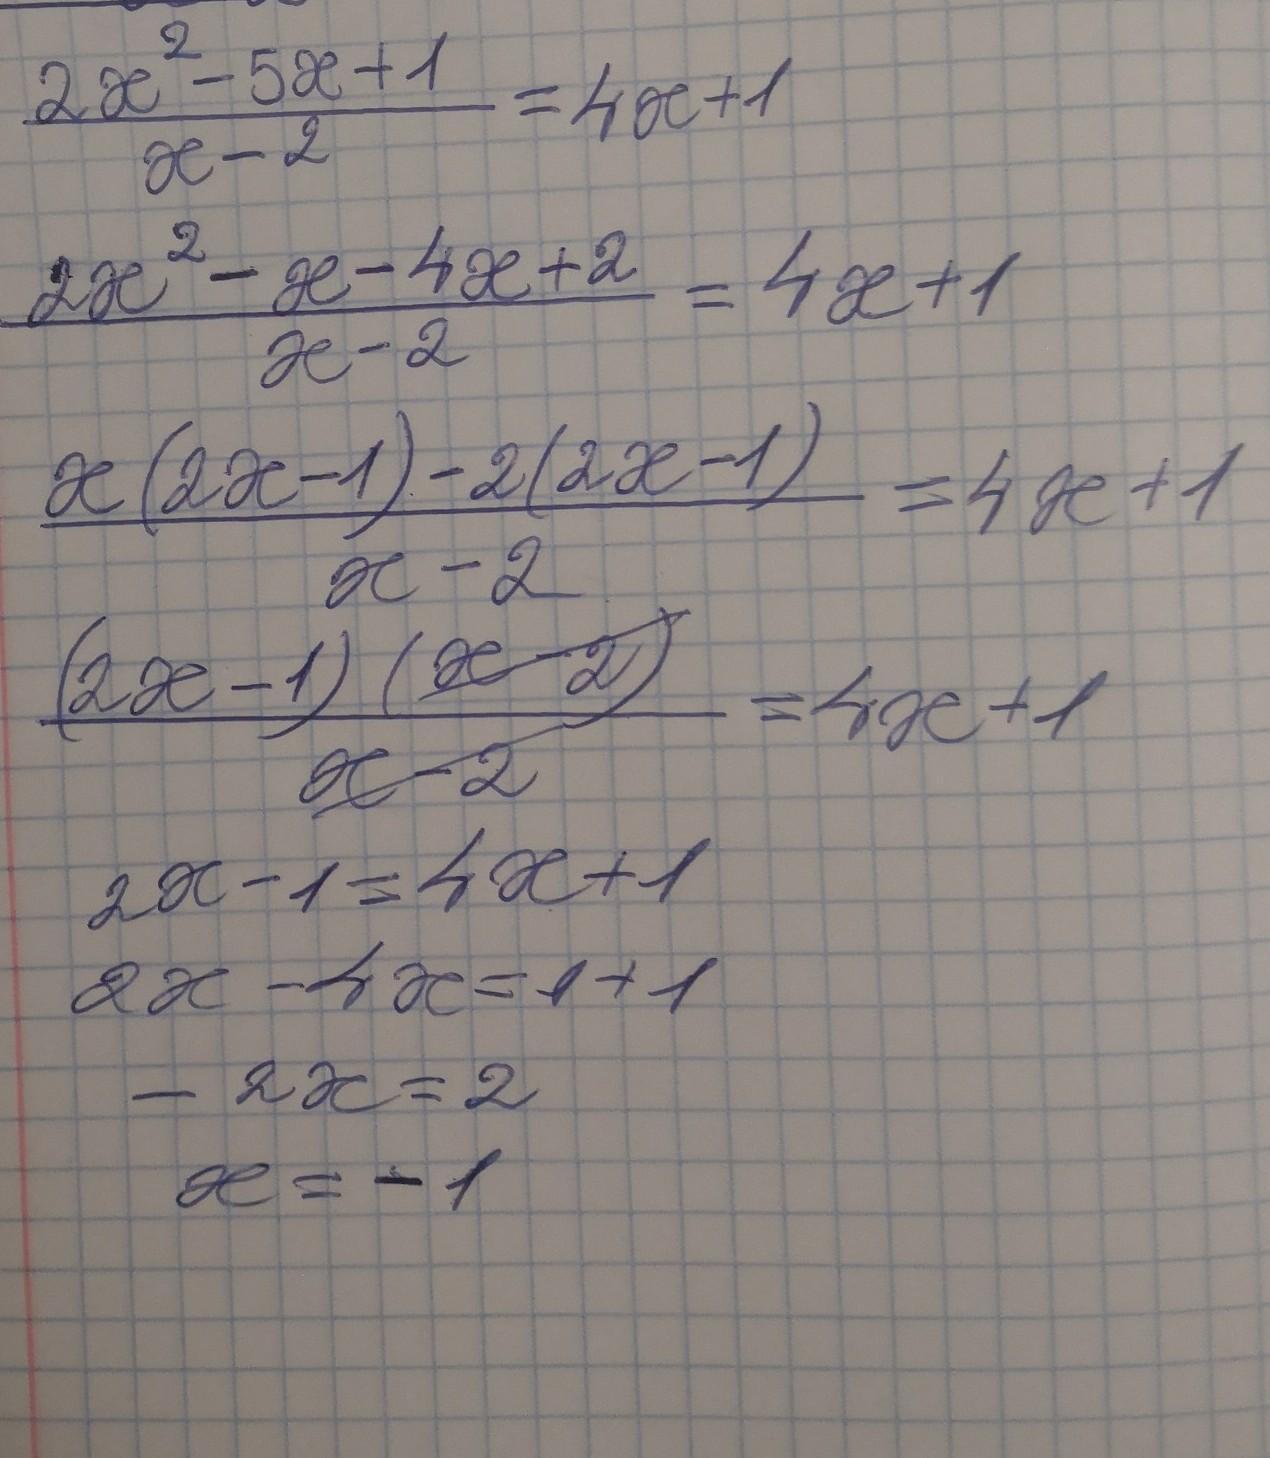 2x² - 5x + 1 / x - 2 = 4x + 1
2x² - x - 4x + 2 / x - 2 = 4x + 1
x(2x - 1) - 2(2x - 1) / x - 2 = 4x + 1
(2x - 1)(x - 2) / x - 2 = 4x + 1
2x - 1 = 4x + 1
2x - 4x = 1 + 1
- 2x = 2
x = - 1